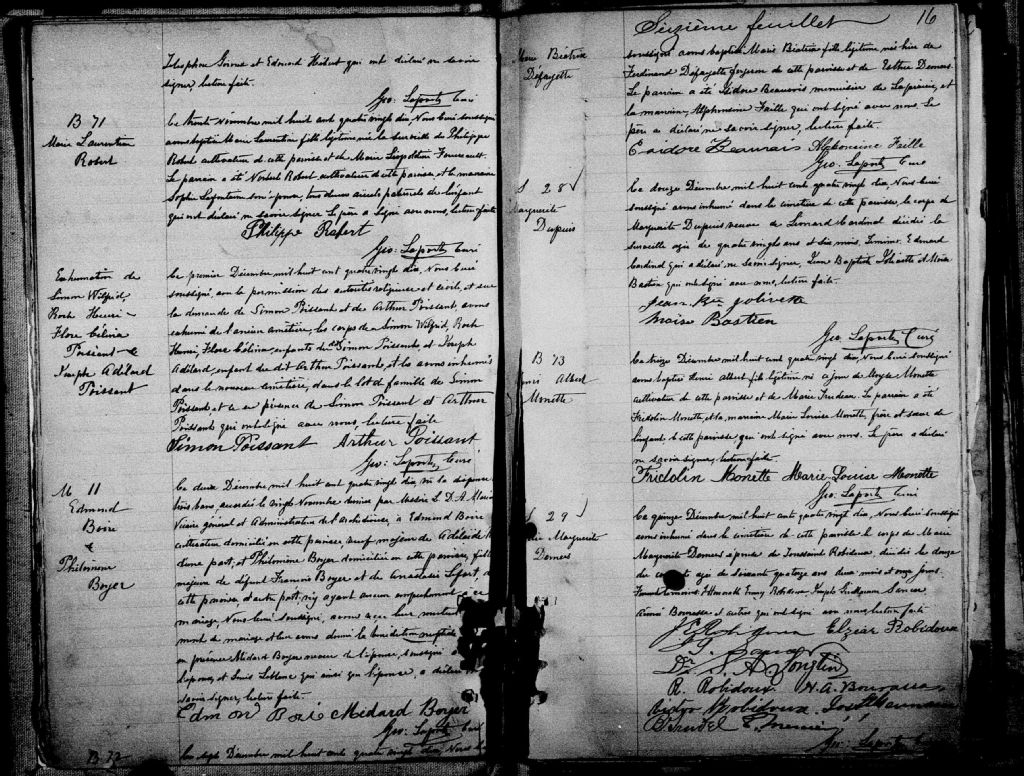 Telesphore et Edmond Hébert qui ont déclaré ne savoir
signer, lecture faite.
Geo: Laporte Curé
B 71
Marie Laurentia
Robert
Le trente Novembre mil huit cent quatre vingt dix, Nous Curé soussigné
avons baptisé Marie Laurentia fille légitime née la surveille de Philippe
Robert cultivateur de cette paroisse et de Marie Léopoldine
Le parrain a été Norbert Robert cultivateur de cette paroisse et la marraine
Sophie Lafontaine son épouse, tous deux aieuls paternels de l'enfant
qui ont déclaré ne savoir signer. Le père a signé avec nous, lecture faite
Philippe Robert
Geo: Laporte Curé
Exhumation de
Simon Wilfrid
Roch Henri -
Flore Célina
Poissant &
Joseph Adélard
Poissant
Le premier Décembre mil huit cent quatre vingt dix, Nous Curé
soussigné, avec la permission des autorités religieuse et civile, et sur
la demande de Simon Poissant et de Arthur Poissant, avons
exhumé de l'ancien cimetière, les corps de Simon Wilfrid, Roch
Henri, Flore Célina, enfants du dit Simon Poissant et Joseph
Adélard, enfant du dit Arthur Poissant, et les avons inhumés
dans le nouveau cimetière, dans le lot de famille de Simon
Poissant et ce en présence de Simon Poissant et Arthur
Poissant qui ont signé avec nous, lecture faite
Simon Poissant Arthur Poissant
Geo: Laporte, Curé
M 11
Edmond
Boire
&
Philomène
Boyer
Le deux Décembre mil huit cent quatre vingt dix, vu la dispense
trois bans, accordée le vingt Novembre dernier par Messire L. D. A. Maréchal
Vicaire général et Administrateur de l'Archidiocèse, à Edmond Boire
cultivateur domicilié en cette paroisse, fils majeur de Adélaide
d'une part, et Philomène Boyer domiciliée en cette paroisse, fille
majeure de défunt François Boyer et de Anastasie Lefort, de
cette paroisse, d'autre part; n'y ayant aucun empêchement à ce
mariage, Nous Curé soussigné, avons reçu leur mutuel
ment de mariage et leur avons donné la bénédiction nuptiale
en présence Médard Boyer de l'épouse, soussigné
l'épouse, et Louis Leblanc qui ainsi que l'épouse, a déclaré
savoir signer, lecture faite.
Edmond Boire Médard Boyer
Geo: Laporte Curé
B 72
Le sept Décembre mil huit cent quatre vingt dix, Nous
Sixième feuillet
16
Marie Béatrice
Défayette
soussigné avons baptisé Marie Béatrice fille légitime née hier de
Ferdinand Défayette forgeron de cette paroisse et de Esther Demers
Le parrain a été Isidore Beauvais menuisier de Laprairie, et
la marraine, Alphonsine Faille qui ont signé avec nous. Le
père a déclaré ne savoir signer, lecture faite.
Esidore Beauvais Alphonsine Faille
Geo: Laporte Curé
S 28
Marguerite
Dupuis
Le douze Décembre mil huit cent quatre vingt dix, Nous Curé
soussigné avons inhumé dans le cimetière de cette paroisse, le corps de
Marguerite Dupuis veuve de Léonard Cardinal décédée la
surveille agée de quatre vingts ans et six mois. Témoins, Edouard
Cardinal qui a déclaré, ne savoir signer, Jean Baptiste Jolivette et Moise
Bastien qui ont signé avec nous, lecture faite.
Jean Bte Jolivette
Moise Bastien
Geo: Laporte, Curé
B 73
Henri Albert
Monette
Le treize Décembre mil huit cent quatre vingt dix, Nous Curé soussigné
avons baptisé Henri Albert fils légitime né ce jour de Moyse Monette
cultivateur de cette paroisse et de Marie Trudeau. Le parrain a été
Fridolin Monette, et la marraine Marie Louise Monette, frère et soeur de
l'enfant de cette paroisse qui ont signé avec nous. Le père a déclaré
ne savoir signer, lecture faite.
Fridolin Monette Marie-Louise Monette
Geo: Laporte Curé
S 29
Marie Marguerite
Demers
Le quinze Décembre mil huit cent quatre vingt dix, Nous Curé soussigné
avons inhumé dans le cimetière de cette paroisse le corps de Marie
Marguerite Demers épouse de Toussaint Robidoux, décédée le douze
de courant agée de soixante quatorze ans deux mois et onze jours.
Furent témoins, Robidoux, Joseph
et autres qui ont signé avec nous, lecture faite
Elzéar Robidoux
Dr S. A. Longtin
R. Robidoux H. A. Bourassa
Robidoux
Geo: Laporte